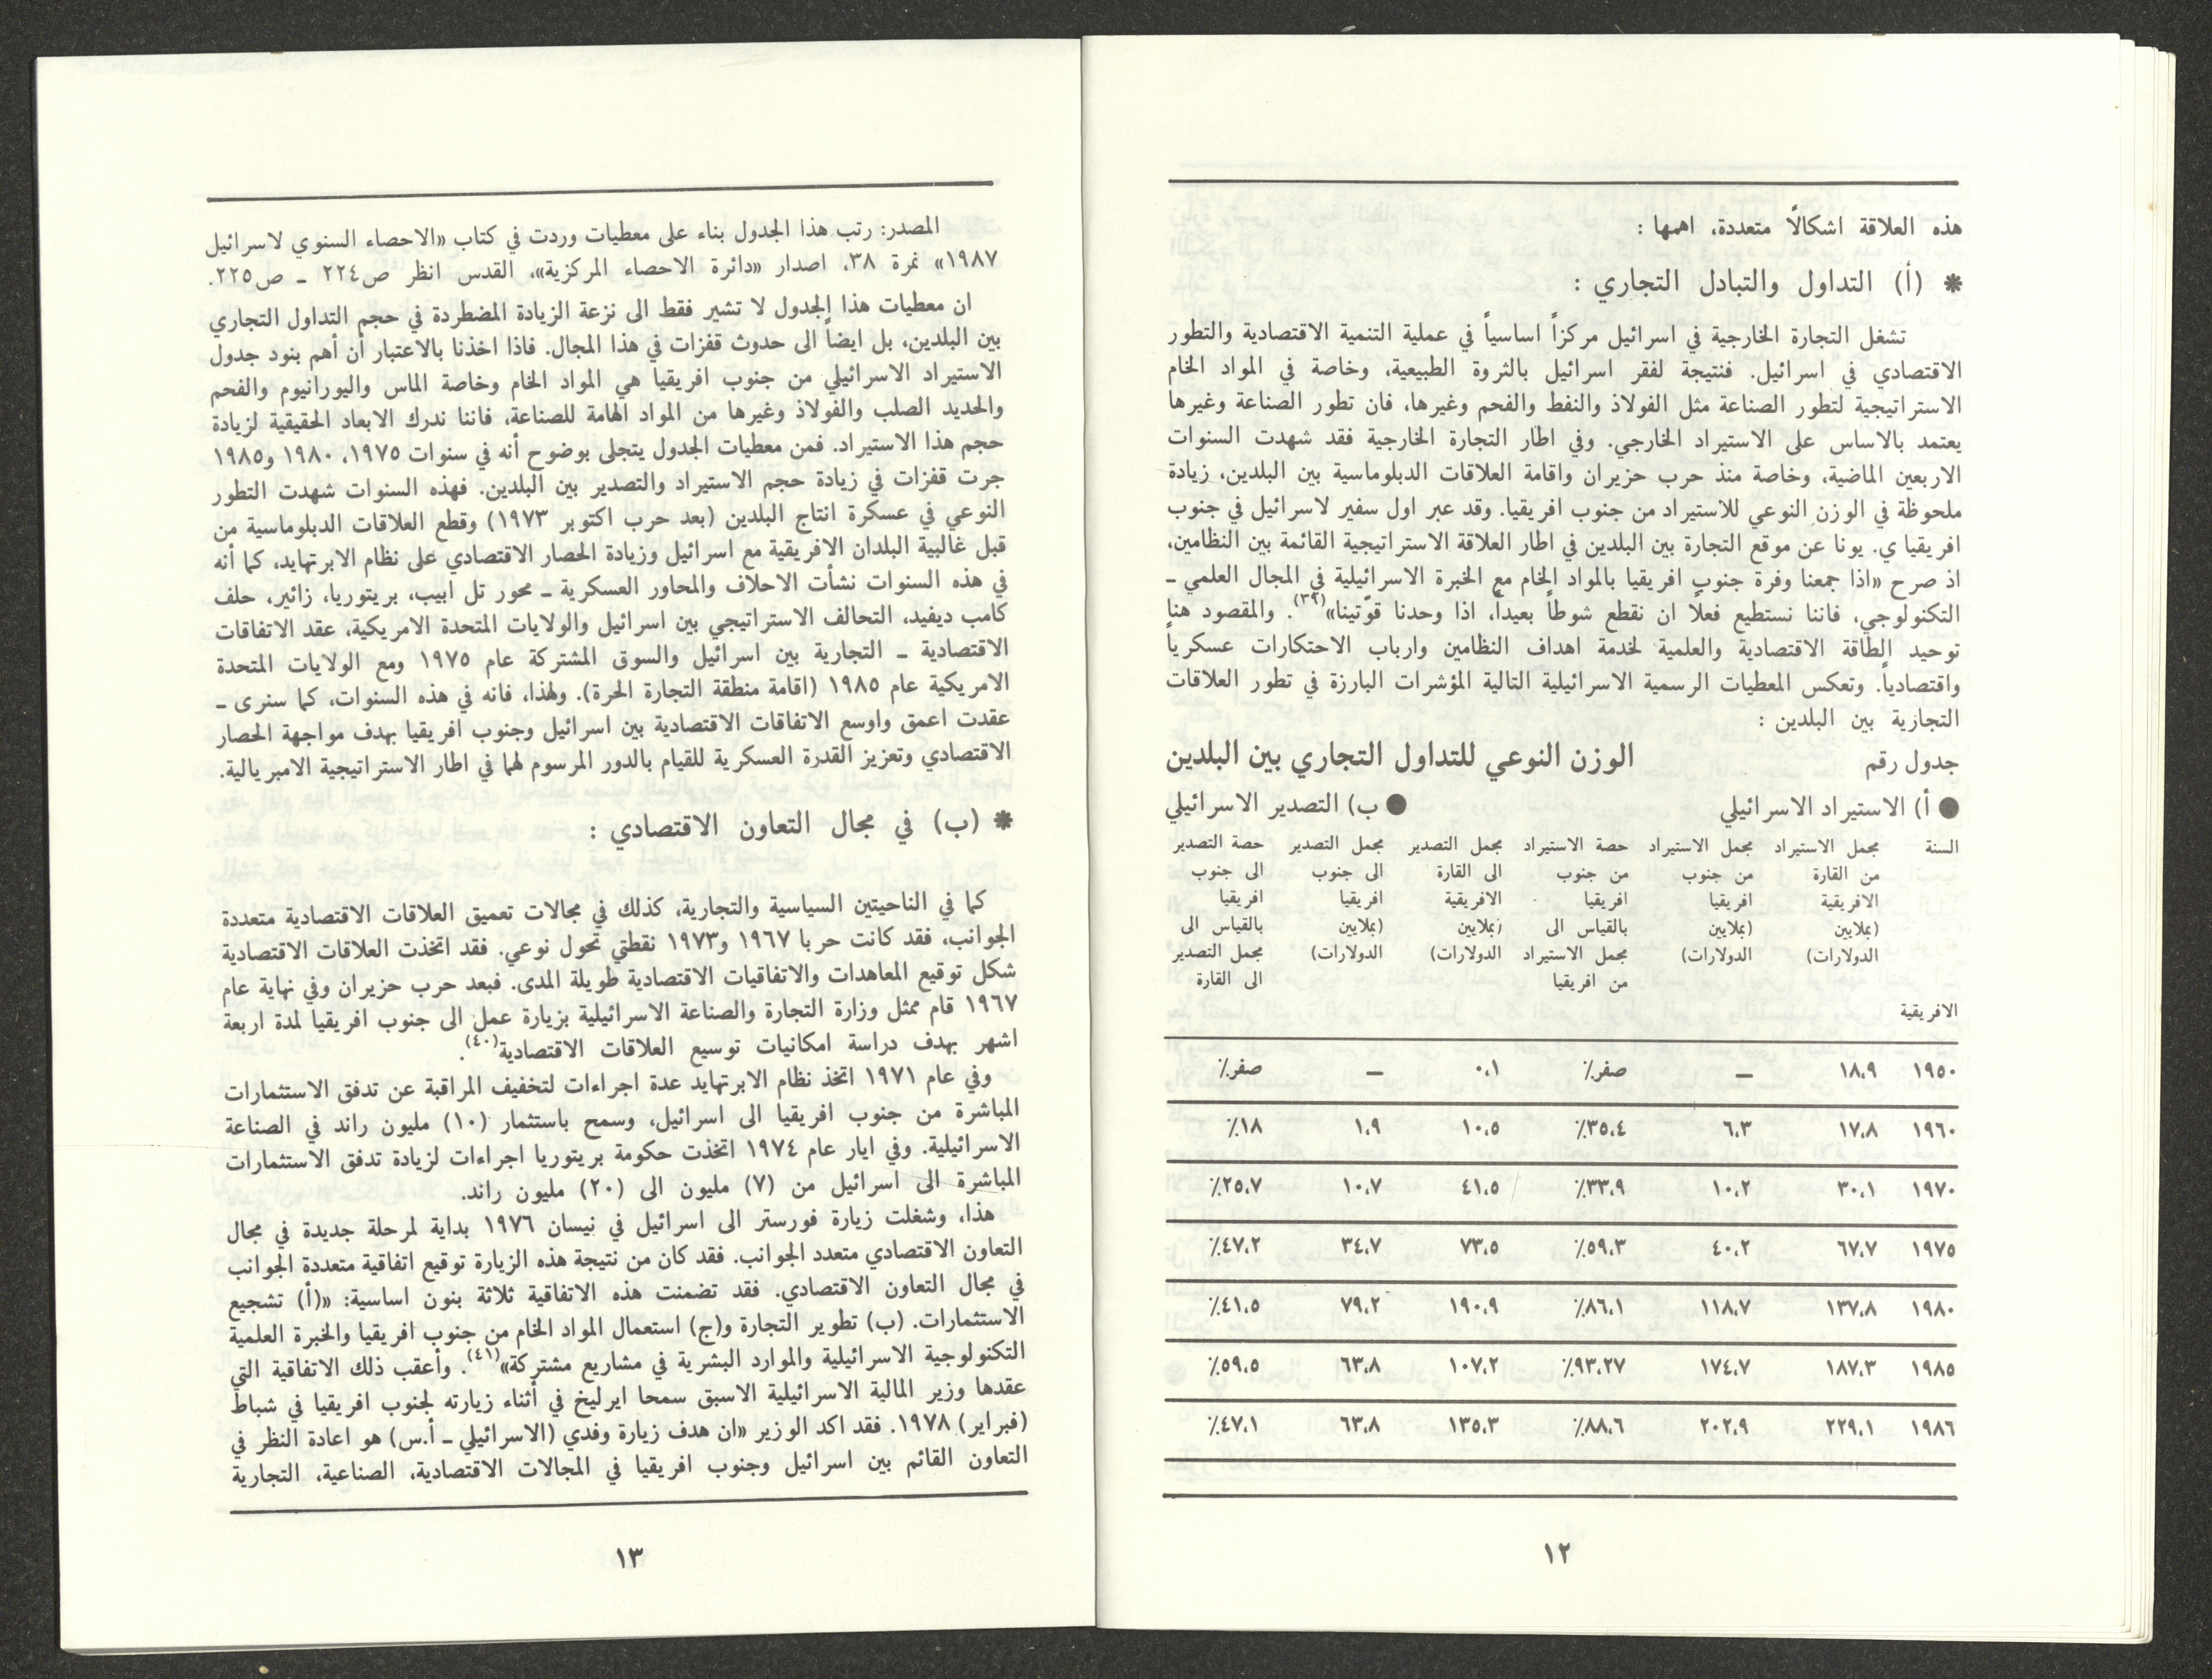 هذه العلاقة اشكالاً متعددة، اهمها :
* (أ) التداول والتبادل التجاري :
تشغل التجارة الخارجية في اسرائيل مركزاً اساسياً في عملية التنمية الاقتصادية والتطور
الاقتصادي في اسرائيل. فنتيجة لفقر اسرائيل بالثروة الطبيعية، وخاصة في المواد الخام
الاستراتيجية لتطور الصناعة مثل الفولاذ والنفط والفحم وغيرها، فان تطور الصناعة وغيرها
يعتمد بالاساس على الاستيراد الخارجي. وفي اطار التجارة الخارجية فقد شهدت السنوات
الاربعين الماضية، وخاصة منذ حرب حزيران واقامة العلاقات الدبلوماسية بين البلدين، زيادة
ملحوظة في الوزن النوعي للاستيراد من جنوب افريقيا. وقد عبر اول سفير لاسرائيل في جنوب
افريقيا ي. يونا عن موقع التجارة بين البلدين في اطار العلاقة الاستراتيجية القائمة بين النظامين،
اذ صرح «اذا جمعنا وفرة جنوب افريقيا بالمواد الخام مع الخبرة الاسرائيلية في المجال العلمي ـ
التكنولوجي، فاننا نستطيع فعلاً ان نقطع شوطاً بعيداً، اذا وحدنا قوّتينا»(٣٩). والمقصود هنا
توحيد الطاقة الاقتصادية والعلمية لخدمة اهداف النظامين وارباب الاحتكارات عسكرياً
واقتصادياً. وتعكس المعطيات الرسمية الاسرائيلية التالية المؤشرات البارزة في تطور العلاقات
التجارية بين البلدين :
جدول رقم الوزن النوعي للتداول التجاري بين البلدين
● أ) الاستيراد الاسرائيلي ● ب) التصدير الاسرائيلي
السنة مجمل الاستيراد مجمل الاستيراد حصة الاستيراد مجمل التصدير مجمل التصدير حصة التصدير
من القارة من جنوب من جنوب الى القارة الى جنوب الى جنوب
الافريقية افريقيا افريقيا الافريقية افريقيا افريقيا
(بملايين (بملايين بالقياس الى (بملايين (بملايين بالقياس الى
الدولارات) الدولارات) مجمل الاستيراد الدولارات) الدولارات) مجمل التصدير
من افريقيا الى القارة
الافريقية
١٩٥٠ ١٨،٩ ـ صفر٪ ٠،١ ـ صفر٪
١٩٦٠ ١٧،٨ ٦،٣ ٣٥،٤٪ ١٠،٥ ١،٩ ١٨٪
١٩٧٠ ٣٠،١ ١٠،٢ ٣٣،٩٪ ٤١،٥ ١٠،٧ ٢٥،٧٪
١٩٧٥ ٦٧،٧ ٤٠،٢ ٥٩،٣٪ ٧٣،٥ ٣٤،٧ ٤٧،٢٪
١٩٨٠ ١٣٧،٨ ١١٨،٧ ٨٦،١٪ ١٩٠،٩ ٧٩،٢ ٤١،٥٪
١٩٨٥ ١٨٧،٣ ١٧٤،٧ ٩٣،٢٧٪ ١٠٧،٢ ٦٣،٨ ٥٩،٥٪
١٩٨٦ ٢٢٩،١ ٢٠٢،٩ ٨٨،٦٪ ١٣٥،٣ ٦٣،٨ ٤٧،١٪
١٢
المصدر: رتب هذا الجدول بناء على معطيات وردت في كتاب «الاحصاء السنوي لاسرائيل
١٩٨٧» نمرة ٣٨، اصدار «دائرة الاحصاء المركزية»، القدس انظر ص٢٢٤ ـ ص٢٢٥.
ان معطيات هذا الجدول لا تشير فقط الى نزعة الزيادة المضطردة في حجم التداول التجاري
بين البلدين، بل ايضاً الى حدوث قفزات في هذا المجال. فاذا اخذنا بالاعتبار أن أهم بنود جدول
الاستيراد الاسرائيلي من جنوب افريقيا هي المواد الخام وخاصة الماس واليورانيوم والفحم
والحديد الصلب والفولاذ وغيرها من المواد الهامة للصناعة، فاننا ندرك الابعاد الحقيقية لزيادة
حجم هذا الاستيراد. فمن معطيات الجدول يتجلى بوضوح أنه في سنوات ١٩٧٥، ١٩٨٠ و١٩٨٥
جرت قفزات في زيادة حجم الاستيراد والتصدير بين البلدين. فهذه السنوات شهدت التطور
النوعي في عسكرة انتاج البلدين (بعد حرب اكتوبر ١٩٧٣) وقطع العلاقات الدبلوماسية من
قبل غالبية البلدان الافريقية مع اسرائيل وزيادة الحصار الاقتصادي على نظام الابرتهايد، كما أنه
في هذه السنوات نشأت الاحلاف والمحاور العسكرية ـ محور تل ابيب، بريتوريا، زائير، حلف
كامب ديفيد، التحالف الاستراتيجي بين اسرائيل والولايات المتحدة الامريكية، عقد الاتفاقات
الاقتصادية ـ التجارية بين اسرائيل والسوق المشتركة عام ١٩٧٥ ومع الولايات المتحدة
الامريكية عام ١٩٨٥ (اقامة منطقة التجارة الحرة). ولهذا، فانه في هذه السنوات، كما سنرى ـ
عقدت اعمق واوسع الاتفاقات الاقتصادية بين اسرائيل وجنوب افريقيا بهدف مواجهة الحصار
الاقتصادي وتعزيز القدرة العسكرية للقيام بالدور المرسوم لهما في اطار الاستراتيجية الامبريالية.
* (ب) في مجال التعاون الاقتصادي :
كما في الناحيتين السياسية والتجارية، كذلك في مجالات تعميق العلاقات الاقتصادية متعددة
الجوانب، فقد كانت حربا ١٩٦٧ و١٩٧٣ نقطتي تحول نوعي. فقد اتخذت العلاقات الاقتصادية
شكل توقيع المعاهدات والاتفاقيات الاقتصادية طويلة المدى. فبعد حرب حزيران وفي نهاية عام
١٩٦٧ قام ممثل وزارة التجارة والصناعة الاسرائيلية بزيارة عمل الى جنوب افريقيا لمدة اربعة
اشهر بهدف دراسة امكانيات توسيع العلاقات الاقتصادية(٤٠).
وفي عام ١٩٧١ اتخذ نظام الابرتهايد عدة اجراءات لتخفيف المراقبة عن تدفق الاستثمارات
المباشرة من جنوب افريقيا الى اسرائيل، وسمح باستثمار (١٠) مليون راند في الصناعة
الاسرائيلية. وفي ايار عام ١٩٧٤ اتخذت حكومة بريتوريا اجراءات لزيادة تدفق الاستثمارات
المباشرة الى اسرائيل من (٧) مليون الى (٢٠) مليون راند.
هذا، وشغلت زيارة فورستر الى اسرائيل في نيسان ١٩٧٦ بداية لمرحلة جديدة في مجال
التعاون الاقتصادي متعدد الجوانب. فقد كان من نتيجة هذه الزيارة توقيع اتفاقية متعددة الجوانب
في مجال التعاون الاقتصادي. فقد تضمنت هذه الاتفاقية ثلاثة بنون اساسية: «(أ) تشجيع
الاستثمارات. (ب) تطوير التجارة و(ج) استعمال المواد الخام من جنوب افريقيا والخبرة العلمية
التكنولوجية الاسرائيلية والموارد البشرية في مشاريع مشتركة»(٤١). وأعقب ذلك الاتفاقية التي
عقدها وزير المالية الاسرائيلية الاسبق سمحا ايرليخ في أثناء زيارته لجنوب افريقيا في شباط
(فبراير) ١٩٧٨. فقد اكد الوزير «ان هدف زيارة وفدي (الاسرائيلي ـ أ.س) هو اعادة النظر في
التعاون القائم بين اسرائيل وجنوب افريقيا في المجالات الاقتصادية، الصناعية، التجارية
١٣